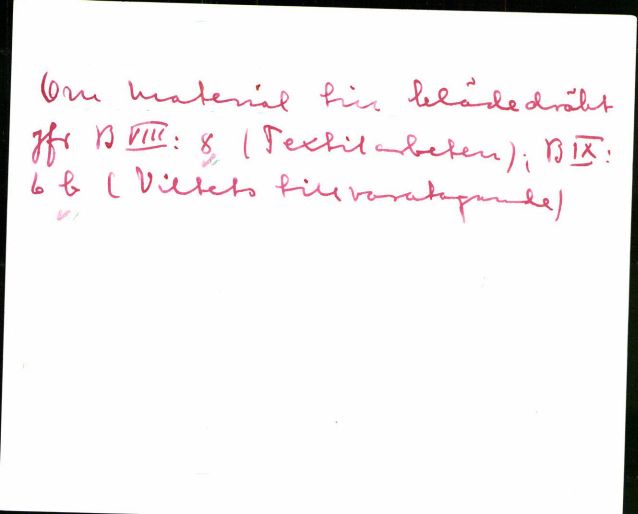 Om material till klädedräkt
jfr B VIII: 8 (Textilarbeten); B IX:
6 b (Viltets tillvaratagande)